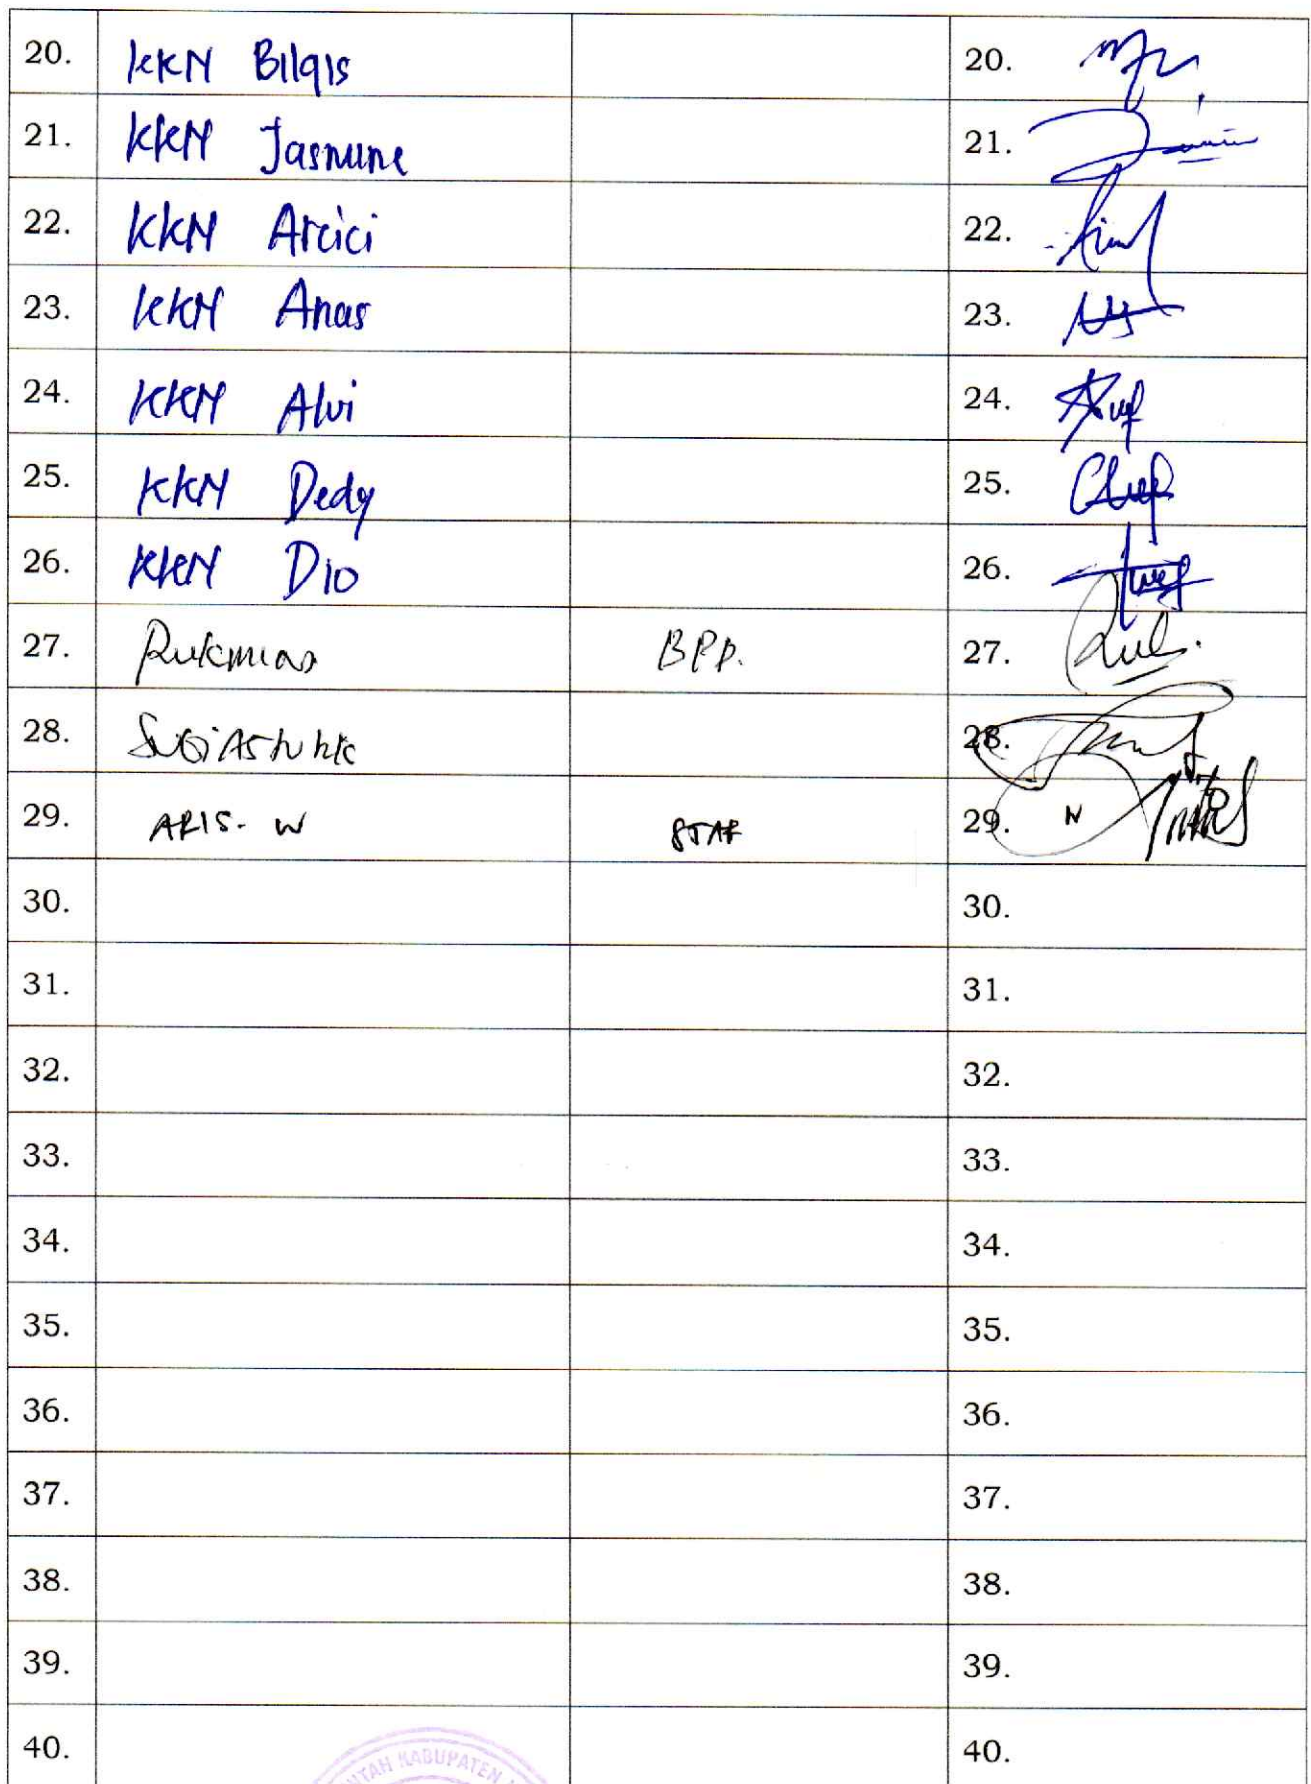 20. KKN Bilqis 20.
21. KKN Jasmine 21.
22. KKN Arcici 22.
23. KKN Anas 23.
24. KKN Alvi 24.
25. KKN Dedy 25.
26. KKN Dio 26.
27. Rukmias BPP. 27.
28. 28.
29. ARIS. W STAF 29. N
30. 30.
31. 31.
32. 32.
33. 33.
34. 34.
35. 35.
36. 36.
37. 37.
38. 38.
39. 39.
40. 40.
NTAH KABUPATEN